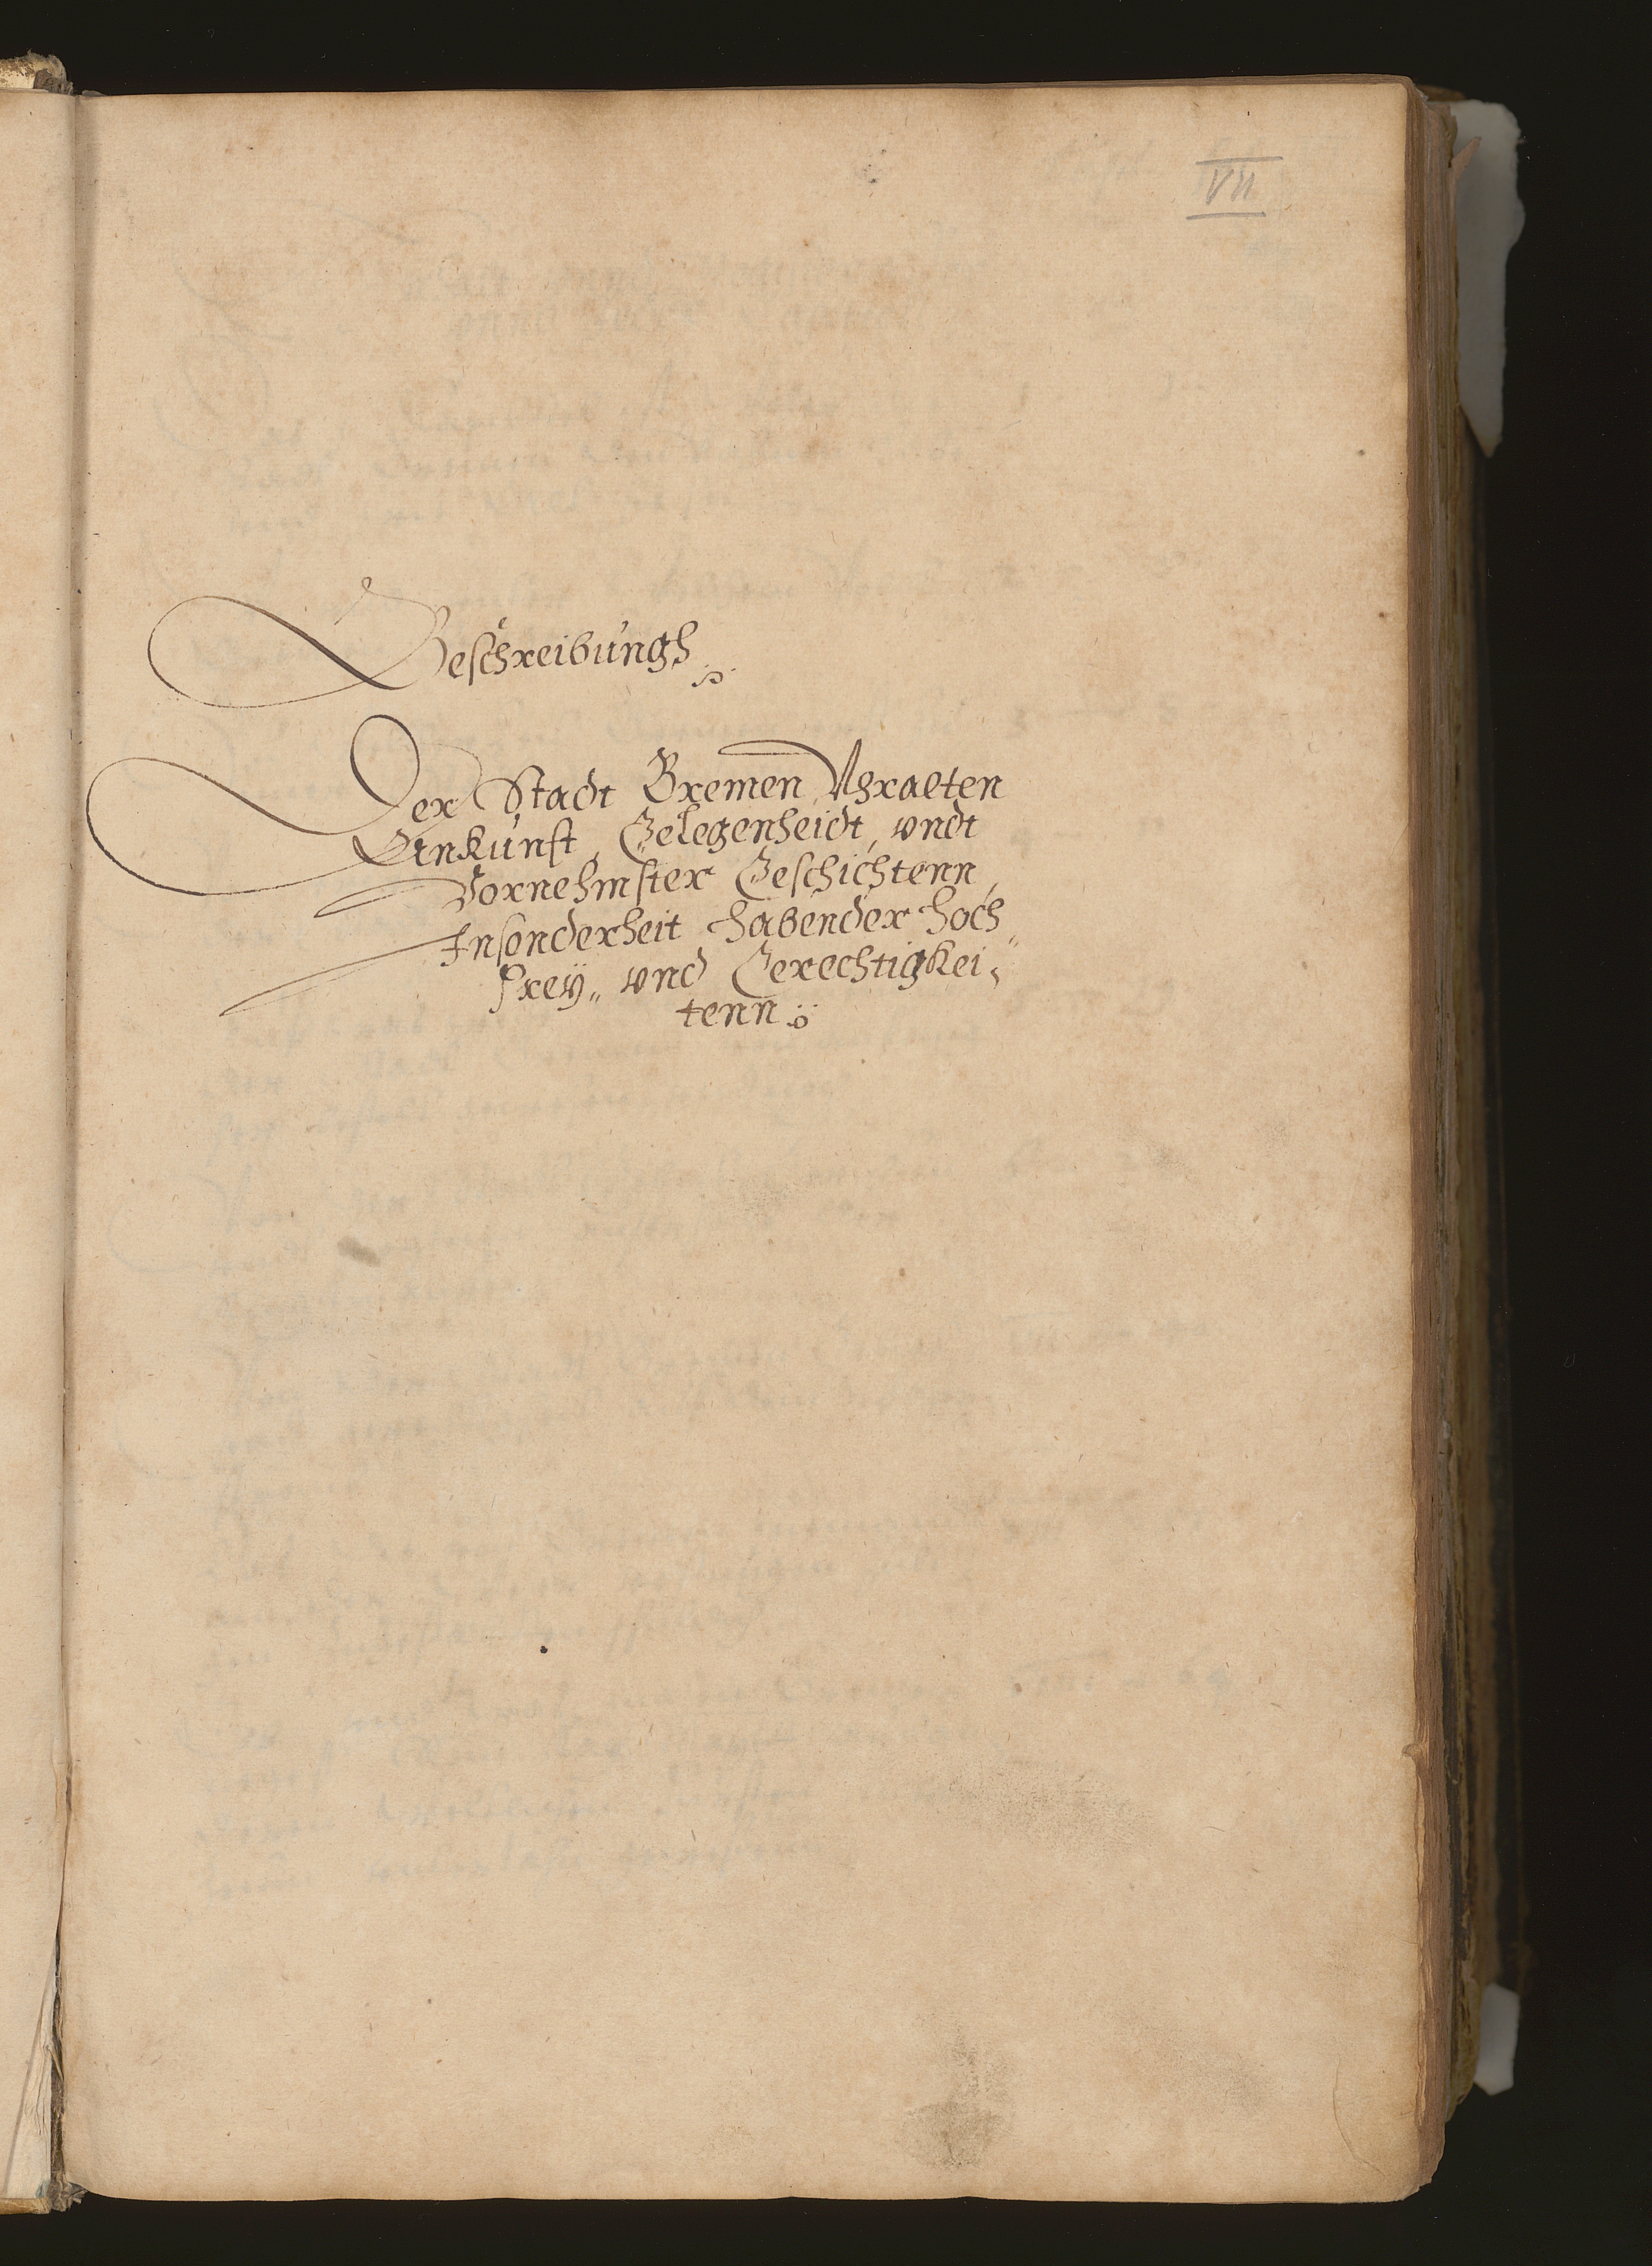 VII
Beschreibungh
Der Stadt Bremen Vhralten
Ankunft, Gelegenheidt, vndt
Vornehmster Geschichtenn,
Insonderheit habender hoch„
Frey„ vnd Gerechtigkei„
tenn